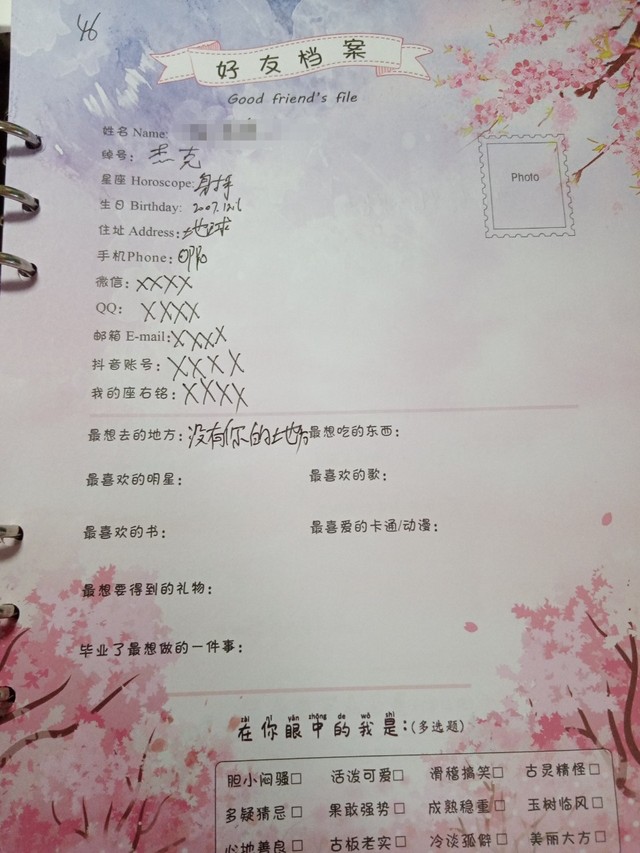 46
好友档案
Good friend's file
姓名 Name:
绰号：杰克
星座 Horoscope:射手
生日 Birthday: 2007.12.1
住址 Address:地球
手机Phone:
微信：XXXX
QQ： XXXX
邮箱 E-mail:XXXX
抖音账号：XXXX
我的座右铭：XXXX
Photo
最想去的地方：没有你的地方 最想吃的东西：
最喜欢的明星： 最喜欢的歌：
最喜欢的书： 最喜爱的卡通/动漫：
最想要得到的礼物：
毕业了最想做的一件事：
zài nǐ yǎn zhōng de wǒ shì
在你眼中的我是：(多选题)
胆小闷骚□ 活泼可爱□ 滑稽搞笑□ 古灵精怪□
多疑猜忌□ 果敢强势□ 成熟稳重□ 玉树临风□
心地善良□ 古板老实□ 冷淡孤僻□ 美丽大方□